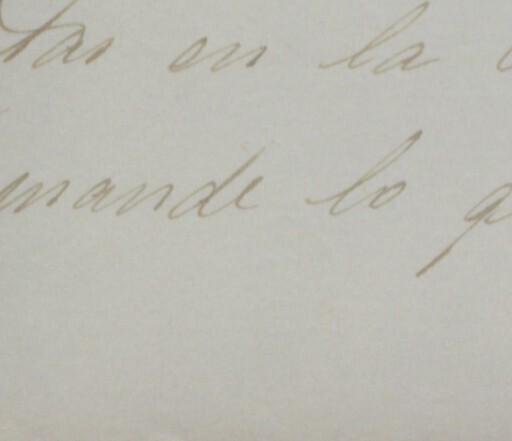 tas en la
mande lo q